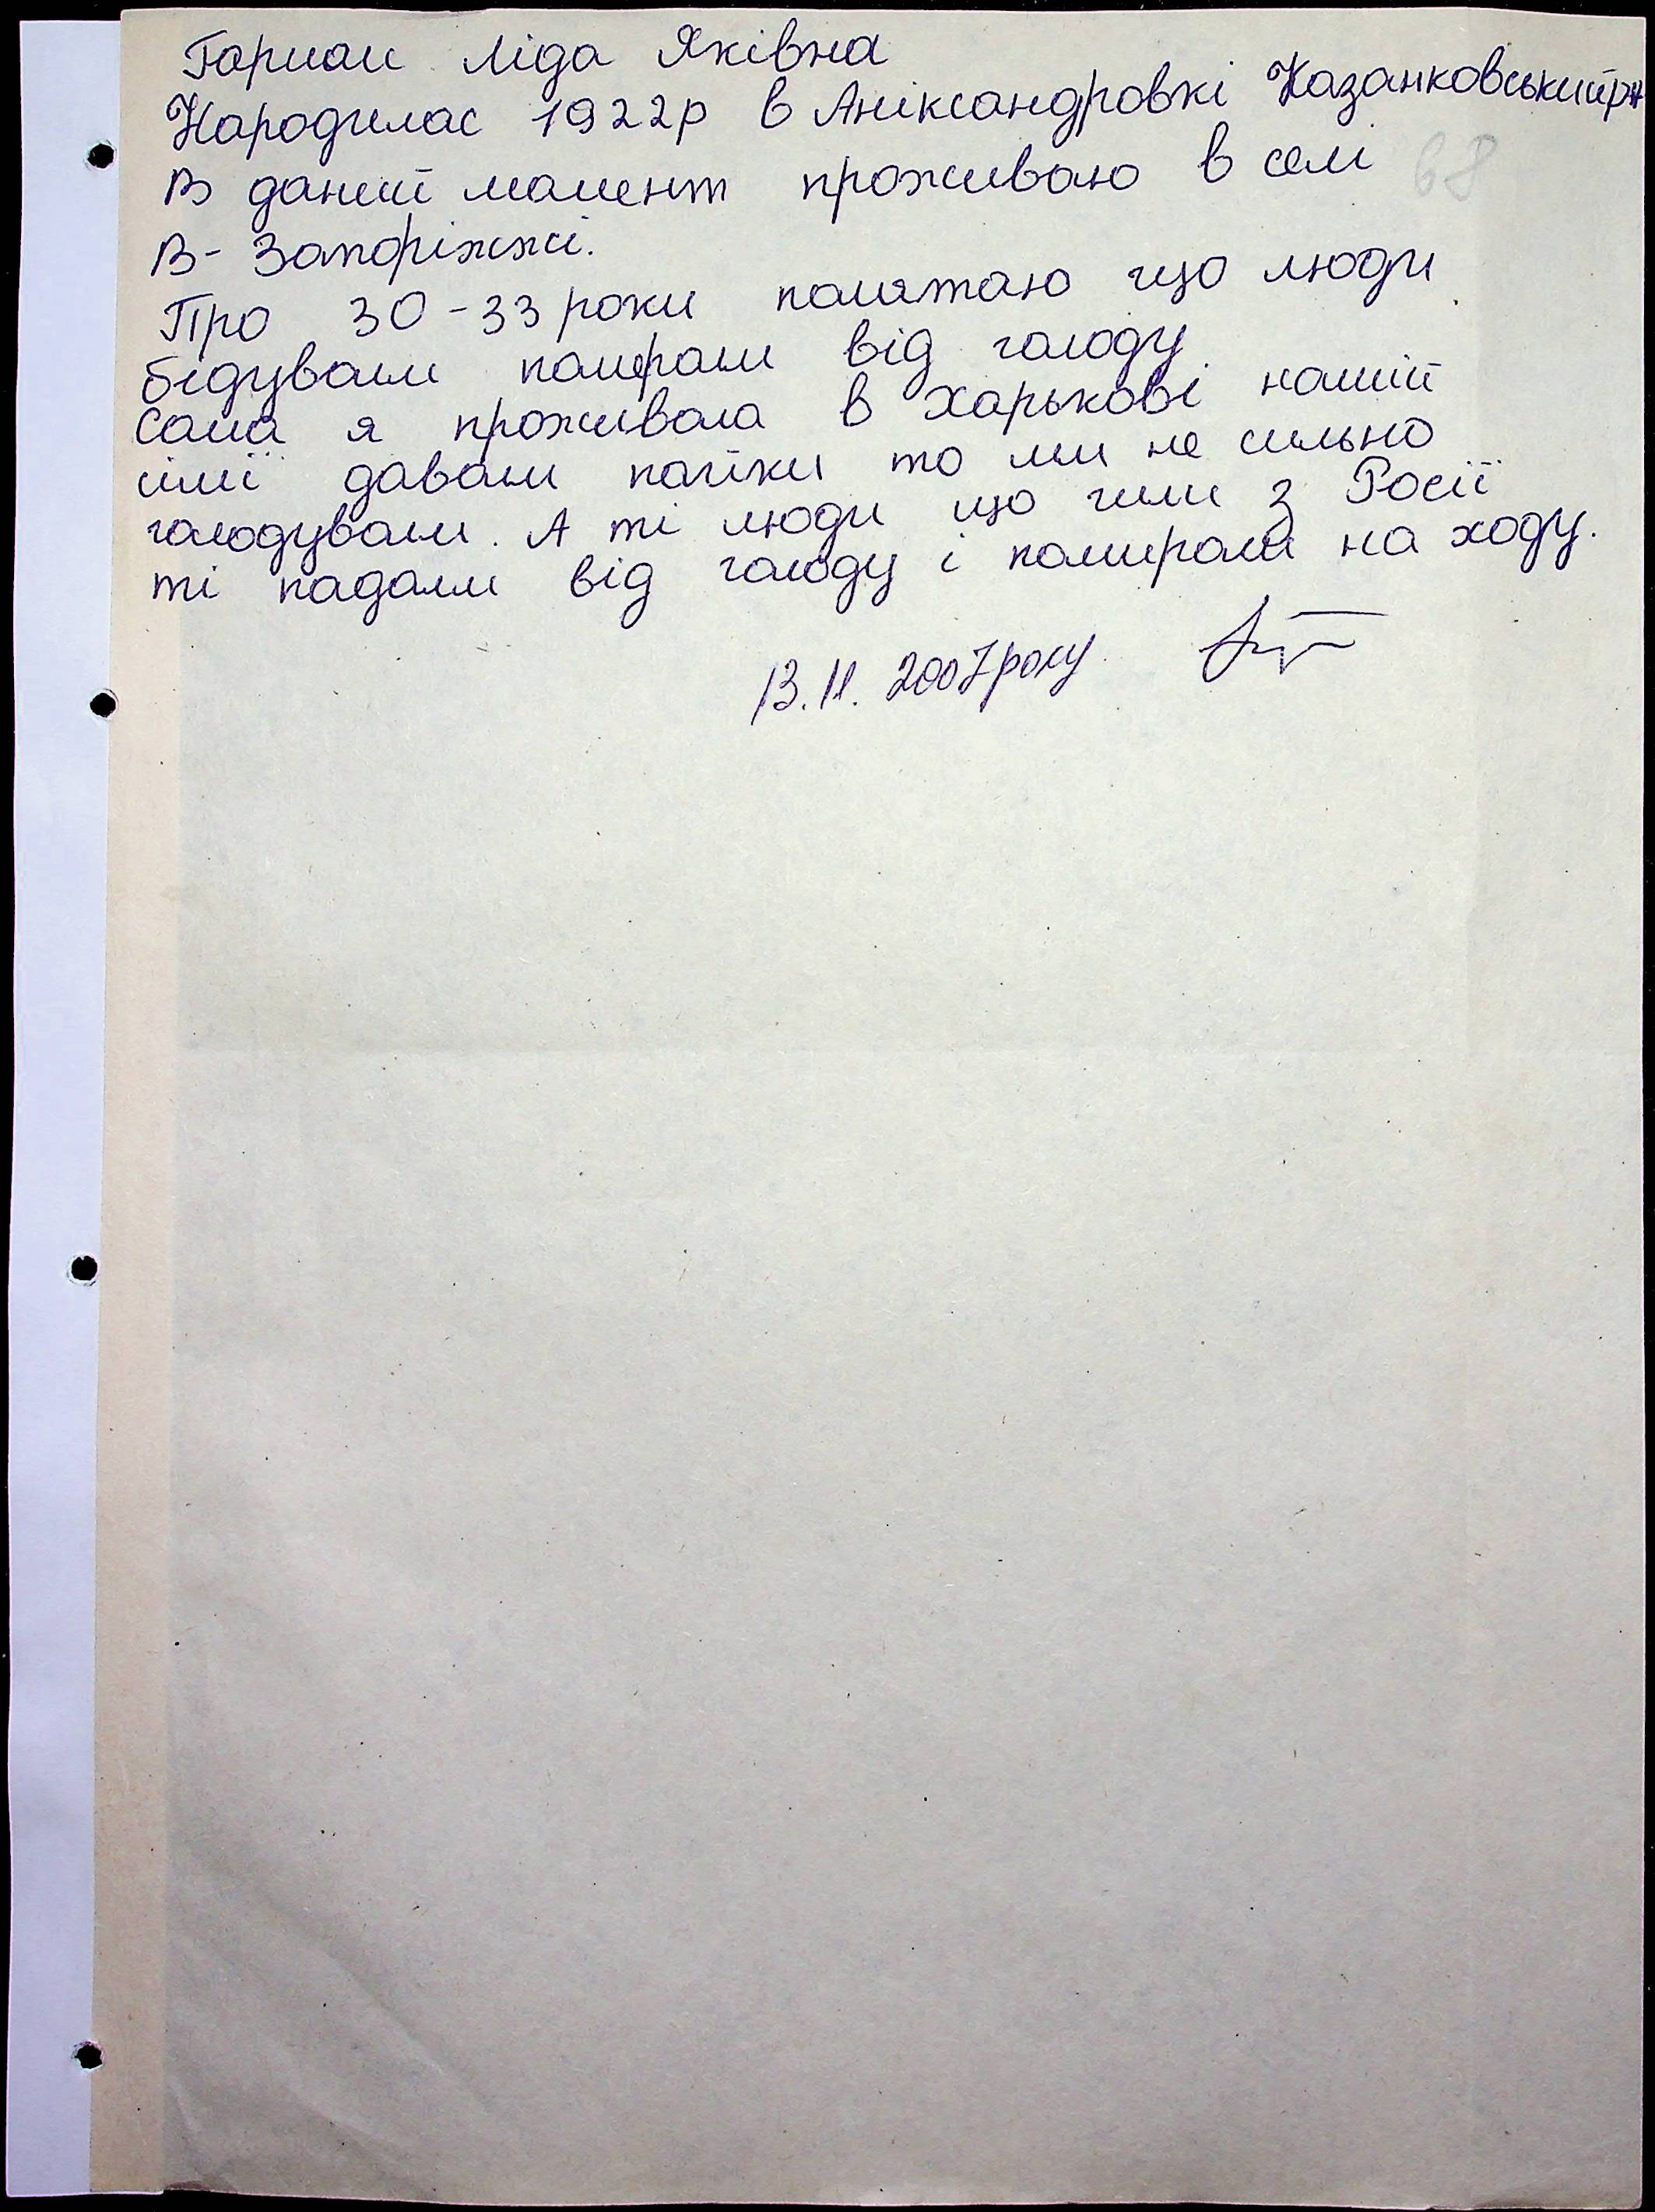 Горман Ліда Яківна
Народилас 1922р в Аніксандровкі Казанковський рн
В даний мамент проживаю в селі 68
В-Запоріжжі.
Про 30-33 роки памятаю що люди
бідували памірали від голоду.
Сама я проживала в Харькові нашій
сімї давали пайки то ми не сильно
голодували. А ті люди що йшли з Росії
ті падали від голоду і памирали на ходу.
13.11.2007 року